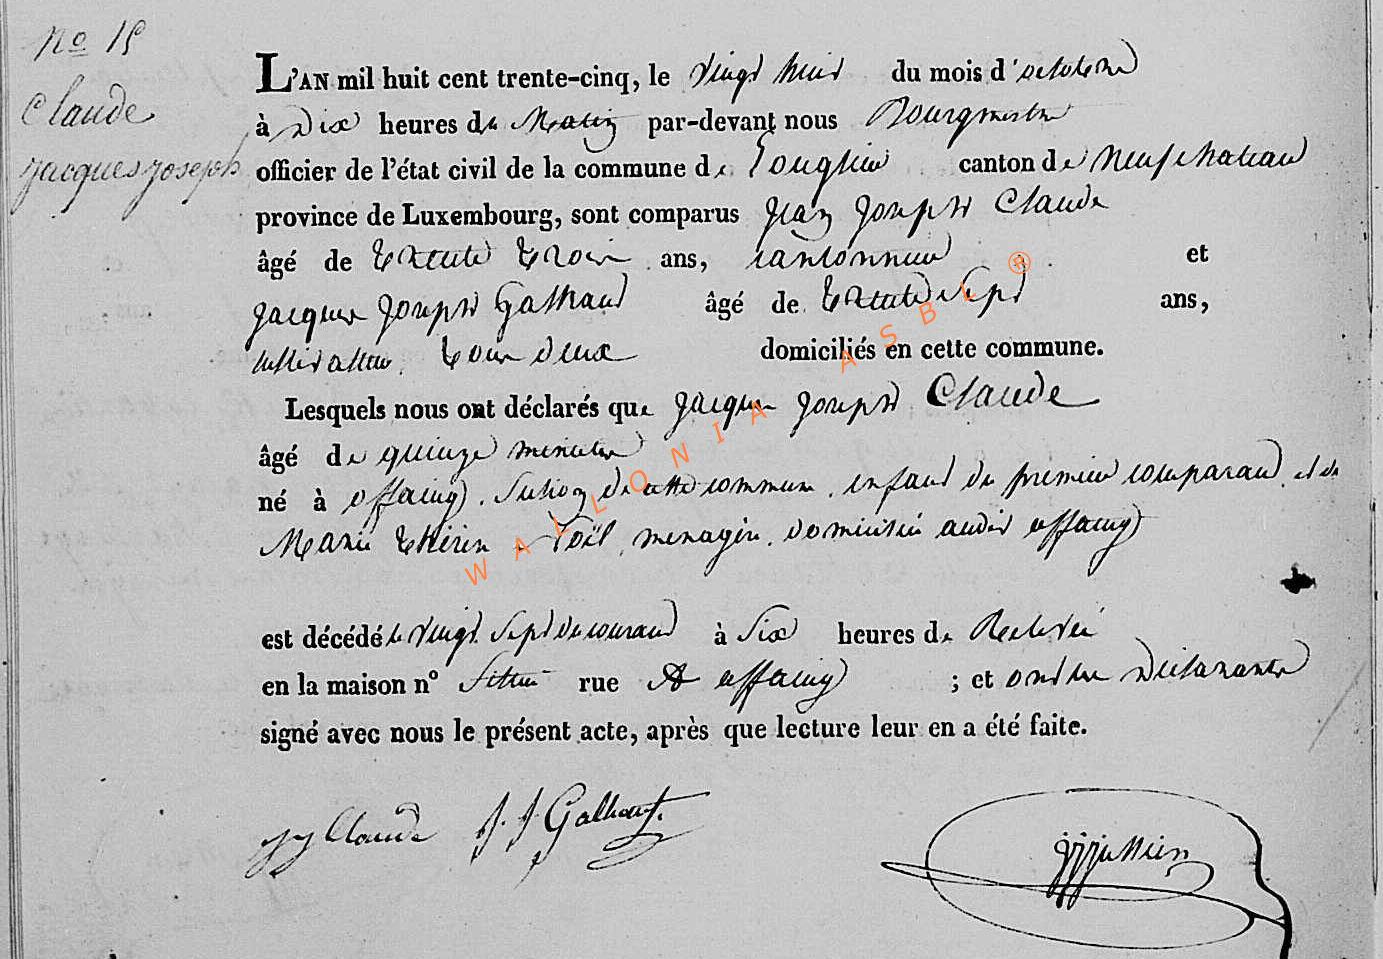 No 15
Claude
Jacques Joseph
L'AN mil huit cent trente-cinq, le vingt huit du mois d'octobre
à Dix heures du Matin par-devant nous Bourgmestre
officier de l'état civil de la commune de Longlier canton de Neufchateau
province de Luxembourg, sont comparus Jean Joseph Claude
âgé de trente trois ans, cantonnier et
Jacques Joseph Galhaut âgé de trente sept ans,
cultivateur tous deux domiciliés en cette commune.
Lesquels nous ont déclarés que Jacques Joseph Claude
âgé de quinze minutes
né à offaing, Section de cette commune, enfant du premier comparant, et de
Marie thérèse Noël, menagère, domiciliée audit offaing
est décédé le vingt Sept du courant à Six heures de Relevée
en la maison n° Située rue A offaing ; et ont les Déclarants
signé avec nous le présent acte, après que lecture leur en a été faite.
JJ Claude J. J. Galhaut.
WALLONIA ASBL ®